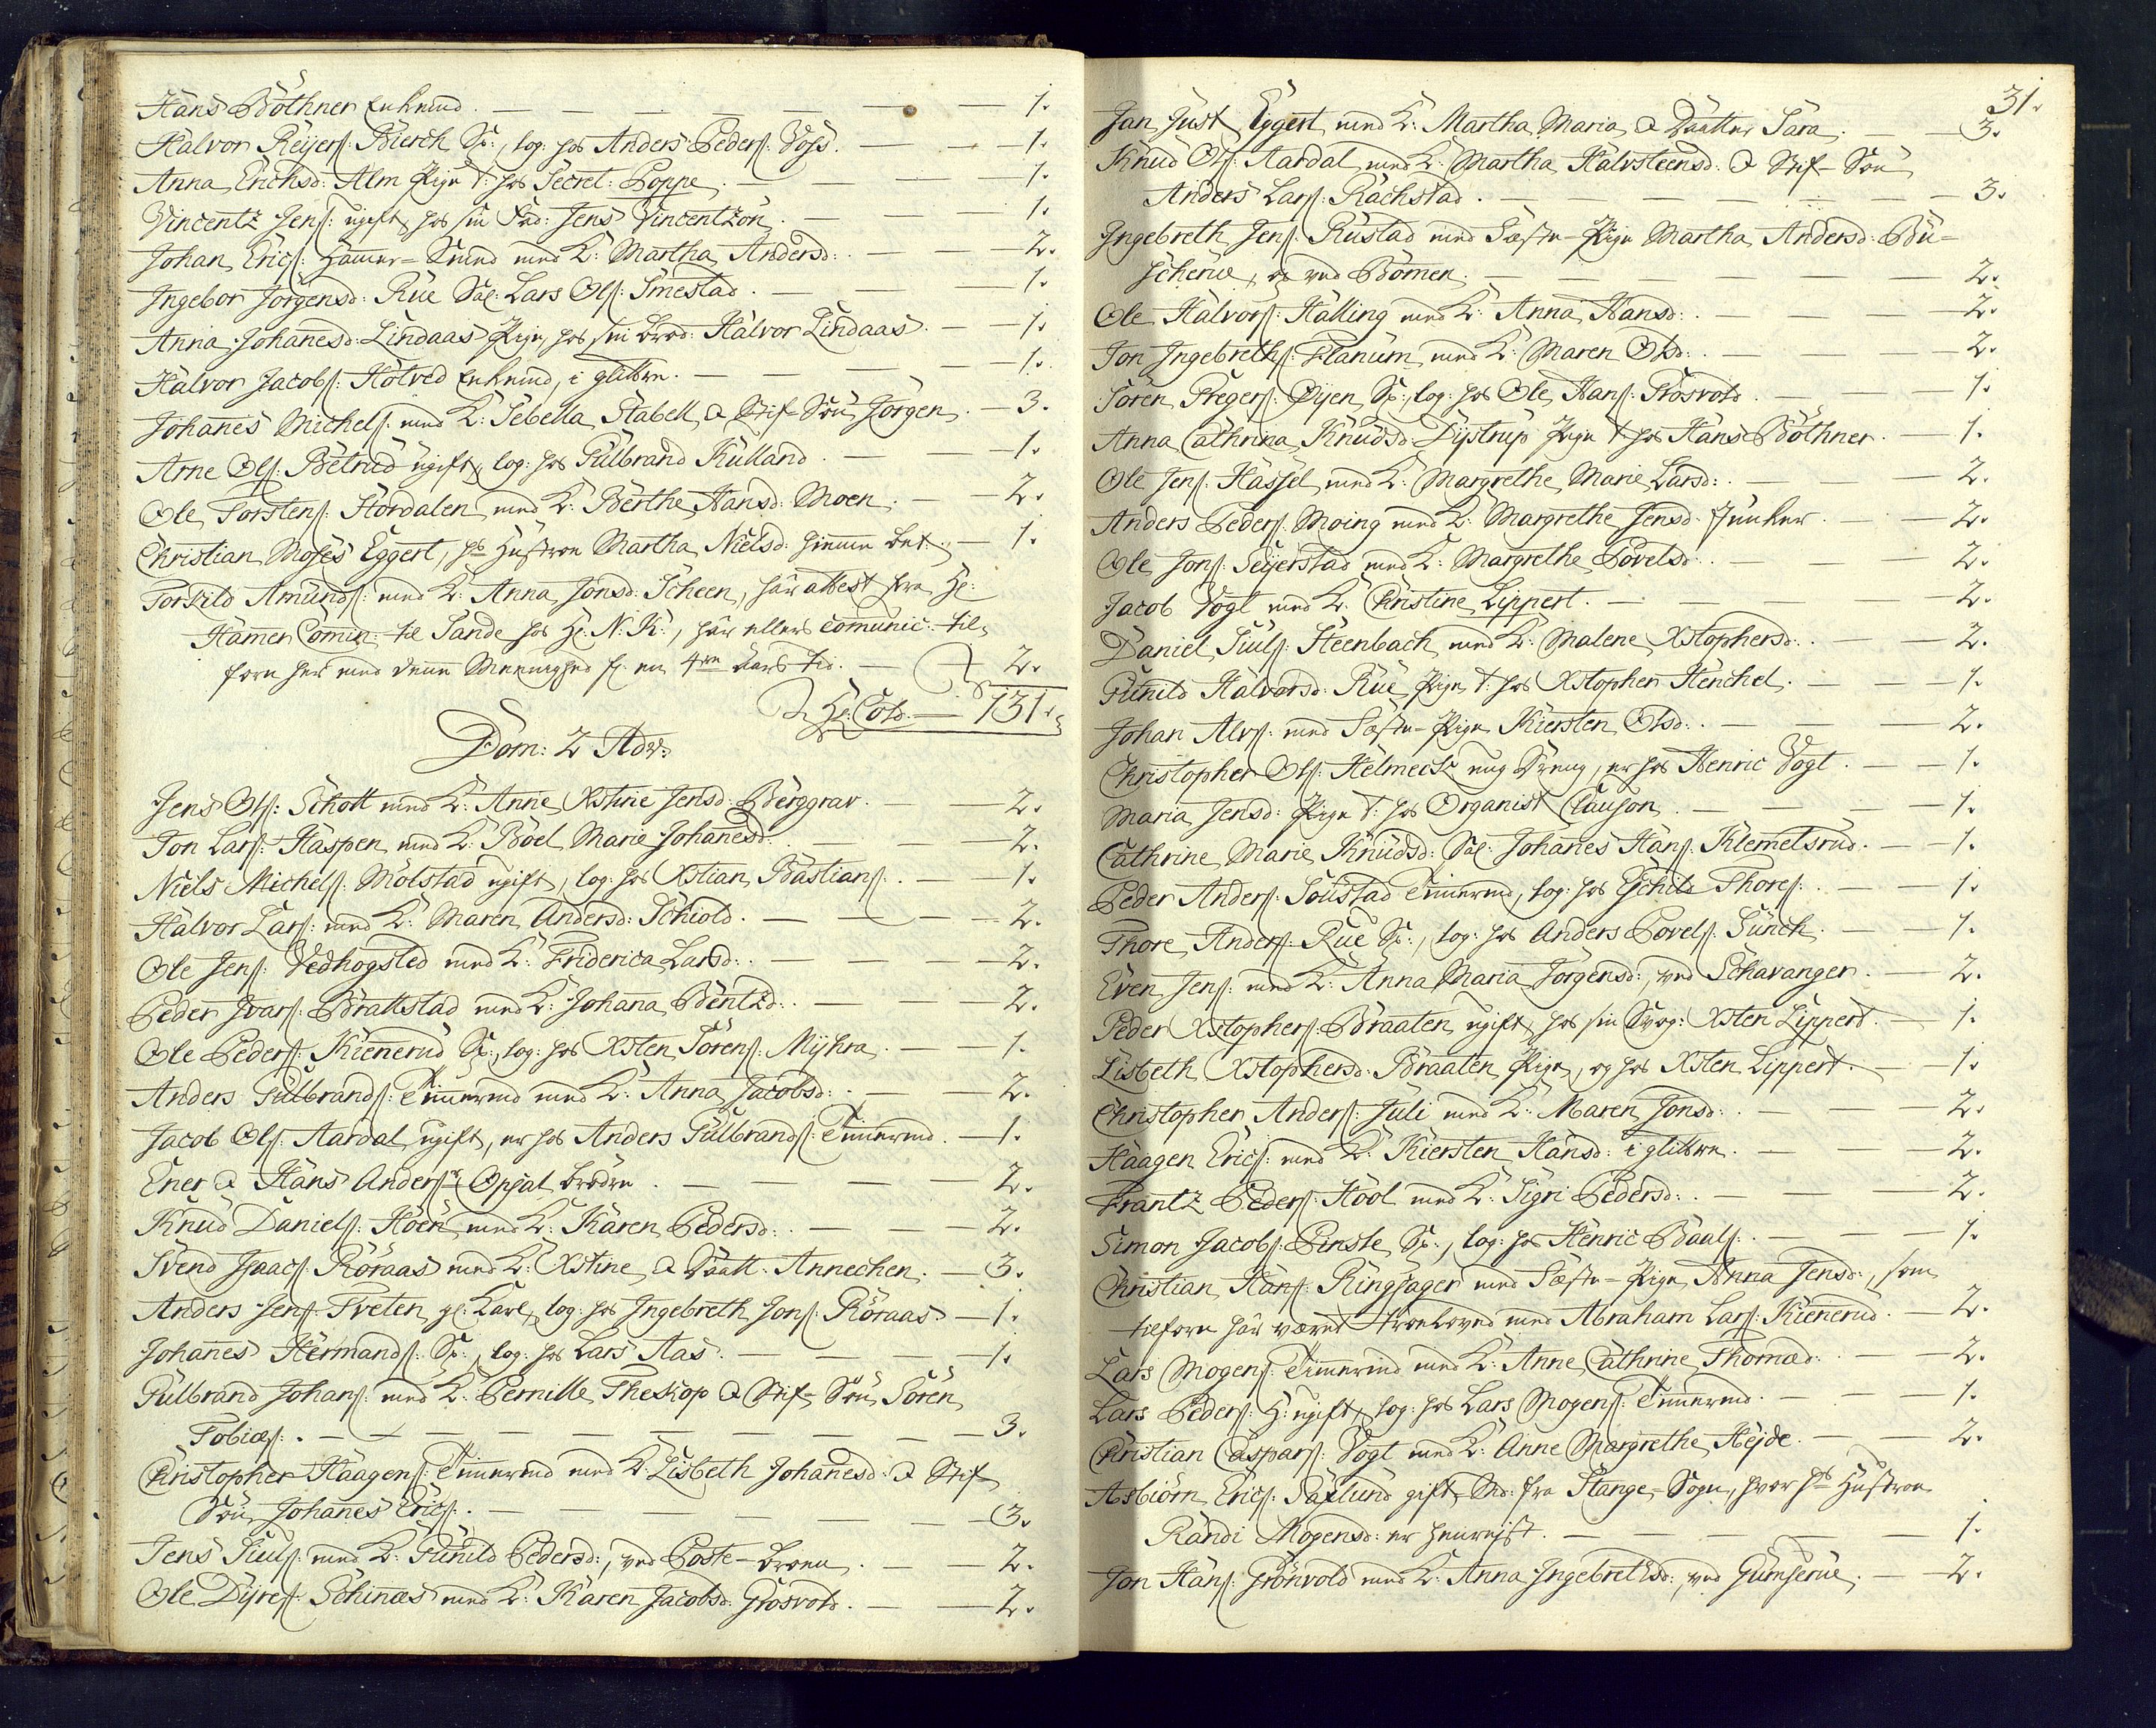 Hans Böthner Enkemd. — 1.
Halvor Reÿers: Bierch Sv:, log: hos Anders Peders: Voss. — 1.
Anna Erichsd: Alm Pige t: hos Secret: Poppe. — 1.
Vincentz Jens: ugift, hos sin Fad: Jens Vincentzön. — 1.
Johan Erics: Hammer-Smed med K: Martha Andersd: — 2.
Ingebor Jörgensd: Rüe Sal: Lars Ols: Smestad. — 1.
Anna Johannesd: Lindaas Pige, hos sin Brod: Halvor Lindaas. — 1.
Halvor Jacobs: Hotved Enkemd, i glittre. — 1.
Johannes Michels: med K: Sebella Stabell & Stif-Sön Jörgen. — 3.
Arne Ols: Betrud ugift, log: hos Gulbrand Kulland. — 1.
Ole Torstens: Stordalen med K: Berthe Hansd: Moen. — 2.
Christian Moses Eggert, hs Hustroe Martha Nielsd: hiemme bet: — 1.
Torkild Amunds: med K: Anna Jonsd: Scheen, har attest fra Hr:
Hammer Comin: til Sande hos Hr: N: K:, har ellers comunic: til-
forn her med denne Meenighed f. en 4re Aars tid. — 2.
Hr: Cold. — 131.
Dom: 2 Adv:
Jens Ols: Schott med K: Anne Xstine Jensd: Berggrav. — 2.
Jon Lars: Haspen med K: Boel Marie Johannesd: — 2.
Niels Michels: Molstad ugift, log: hos Xstian Bastians: — 1.
Halvor Lars: med K: Maren Andersd: Schiold. — 2.
Ole Jens: Vedhogsted med K: Friderica Larsd: — 2.
Peder Ivars: Brattstad med K: Johanna Bentzd: — 2.
Ole Peders: Kiennerud Sv:, log: hos Xsten Sörens: Mÿhra. — 1.
Anders Gulbrands: Timmermd med K: Anna Jacobsd: — 2.
Jacob Ols: Aardal ugift, er hos Anders Gulbrands: Timmermd. — 1.
Ener & Hans Anders: Opsal brödre. — 2.
Knud Daniels: Hoen med K: Karen Pedersd: — 2.
Svend Isaacs: Röraas med K: Xstine & Daatt: Annechen. — 3.
Anders Jens: Tveten, gl: Karl, log: hos Ingebreth Jons: Röraas. — 1.
Johannes Hermands: Sv:, log: hos Lars Aas. — 1.
Gulbrand Johans: med K: Pernille Theskop & Stif-Sön Sören
Tobias: — 3.
Christopher Haagens: Timmermd med K: Lisbeth Johanesd: & Stif-
Sön Johannes Erics: — 3.
Jens Juuls: med K: Gunild Pedersd:, ved Poste-broen. — 2.
Ole Dÿres: Schinæs med K: Karen Jacobsd: Grosvold. — 2.
31.
Jan Just Eggert med K: Martha Maria & Daatter Sara. — 3.
Knud Ols: Aardal med K: Martha Halvsteensd: & Stif-Sön
Anders Lars: Rachstad. — 3.
Ingebreth Jens: Rustad med Fæste-Pige Martha Andersd: Bu-
scherüe, og ved Bommen. — 2.
Ole Halvors: Halling med K: Anna Hansd: — 2.
Jon Ingebreths: Flanum med K: Maren Olsd: — 2.
Sören Gregers: Öÿen Sv:, log: hos Ole Hans: Grosvold. — 1.
Anna Cathrina Knudsd: Dÿstrup Pige t: hos Hans Böthner. — 1.
Ole Jens: Hassel med K: Margrethe Marie Larsd: — 2.
Anders Peders: Moing med K: Margrethe Jensd: Junker. — 2.
Ole Jons: Seÿerstad med K: Margrethe Povelsd: — 2.
Jacob Vogt med K: Christine Lippert. — 2.
Daniel Juuls: Steenbach med K: Malene Xstophersd: — 2.
Gunild Halvorsd: Rüe Pige t: hos Xstopher Henchel. — 1.
Johan Alvs: med Fæste-Pige Kiersten Olsd: — 2.
Christopher Ols: Helmeck ung Dreng, er hos Henric Vogt. — 1.
Maria Jensd: Pige t: hos Organist Clauson. — 1.
Cathrine Marie Knudsd: Sal: Johannes Hans: Klemetsrud. — 1.
Peder Anders: Soustad Timmermd, log: hos Eschild Thores: — 1.
Thore Anders: Rüe Sv:, log: hos Anders Povels: Sünch. — 1.
Even Jens: med K: Anna Maria Jörgensd:, ved Schavanger. — 2.
Peder Xstophers: Braaten ugift, hos sin Svog: Xsten Lippert. — 1.
Lisbeth Xstophersd: Braaten Pige, og hos Xsten Lippert. — 1.
Christopher Anders: Juli med K: Maren Jonsd: — 2.
Haagen Erics: med K: Kiersten Hansd: i glittre. — 2.
Frantz Peders: Hool med K: Sigri Pedersd: — 2.
Simon Jacobs: Penste Sv:, log: hos Henric Baals: — 1.
Christian Hans: Ringsager med Fæste-Pige Anna Jensd:, som
tilforn har været troelovet med Abraham Lars: Kiennerud. — 2.
Lars Mogens: Timmermd med K: Anne Cathrine Thomæd: — 2.
Lars Peders: H: ugift, log: hos Lars Mogens: Timmermd. — 1.
Christian Caspars: Vogt med K: Anne Margrethe Heÿde. — 2.
Asbiörn Erics: Saxlund gift Md: fra Stange-Sogn, hvor hs Hustroe
Randi Mogensd: er henrejst. — 1.
Jon Hans: Grönvold med K: Anna Ingebrethsd: ved Gumserüe. — 2.